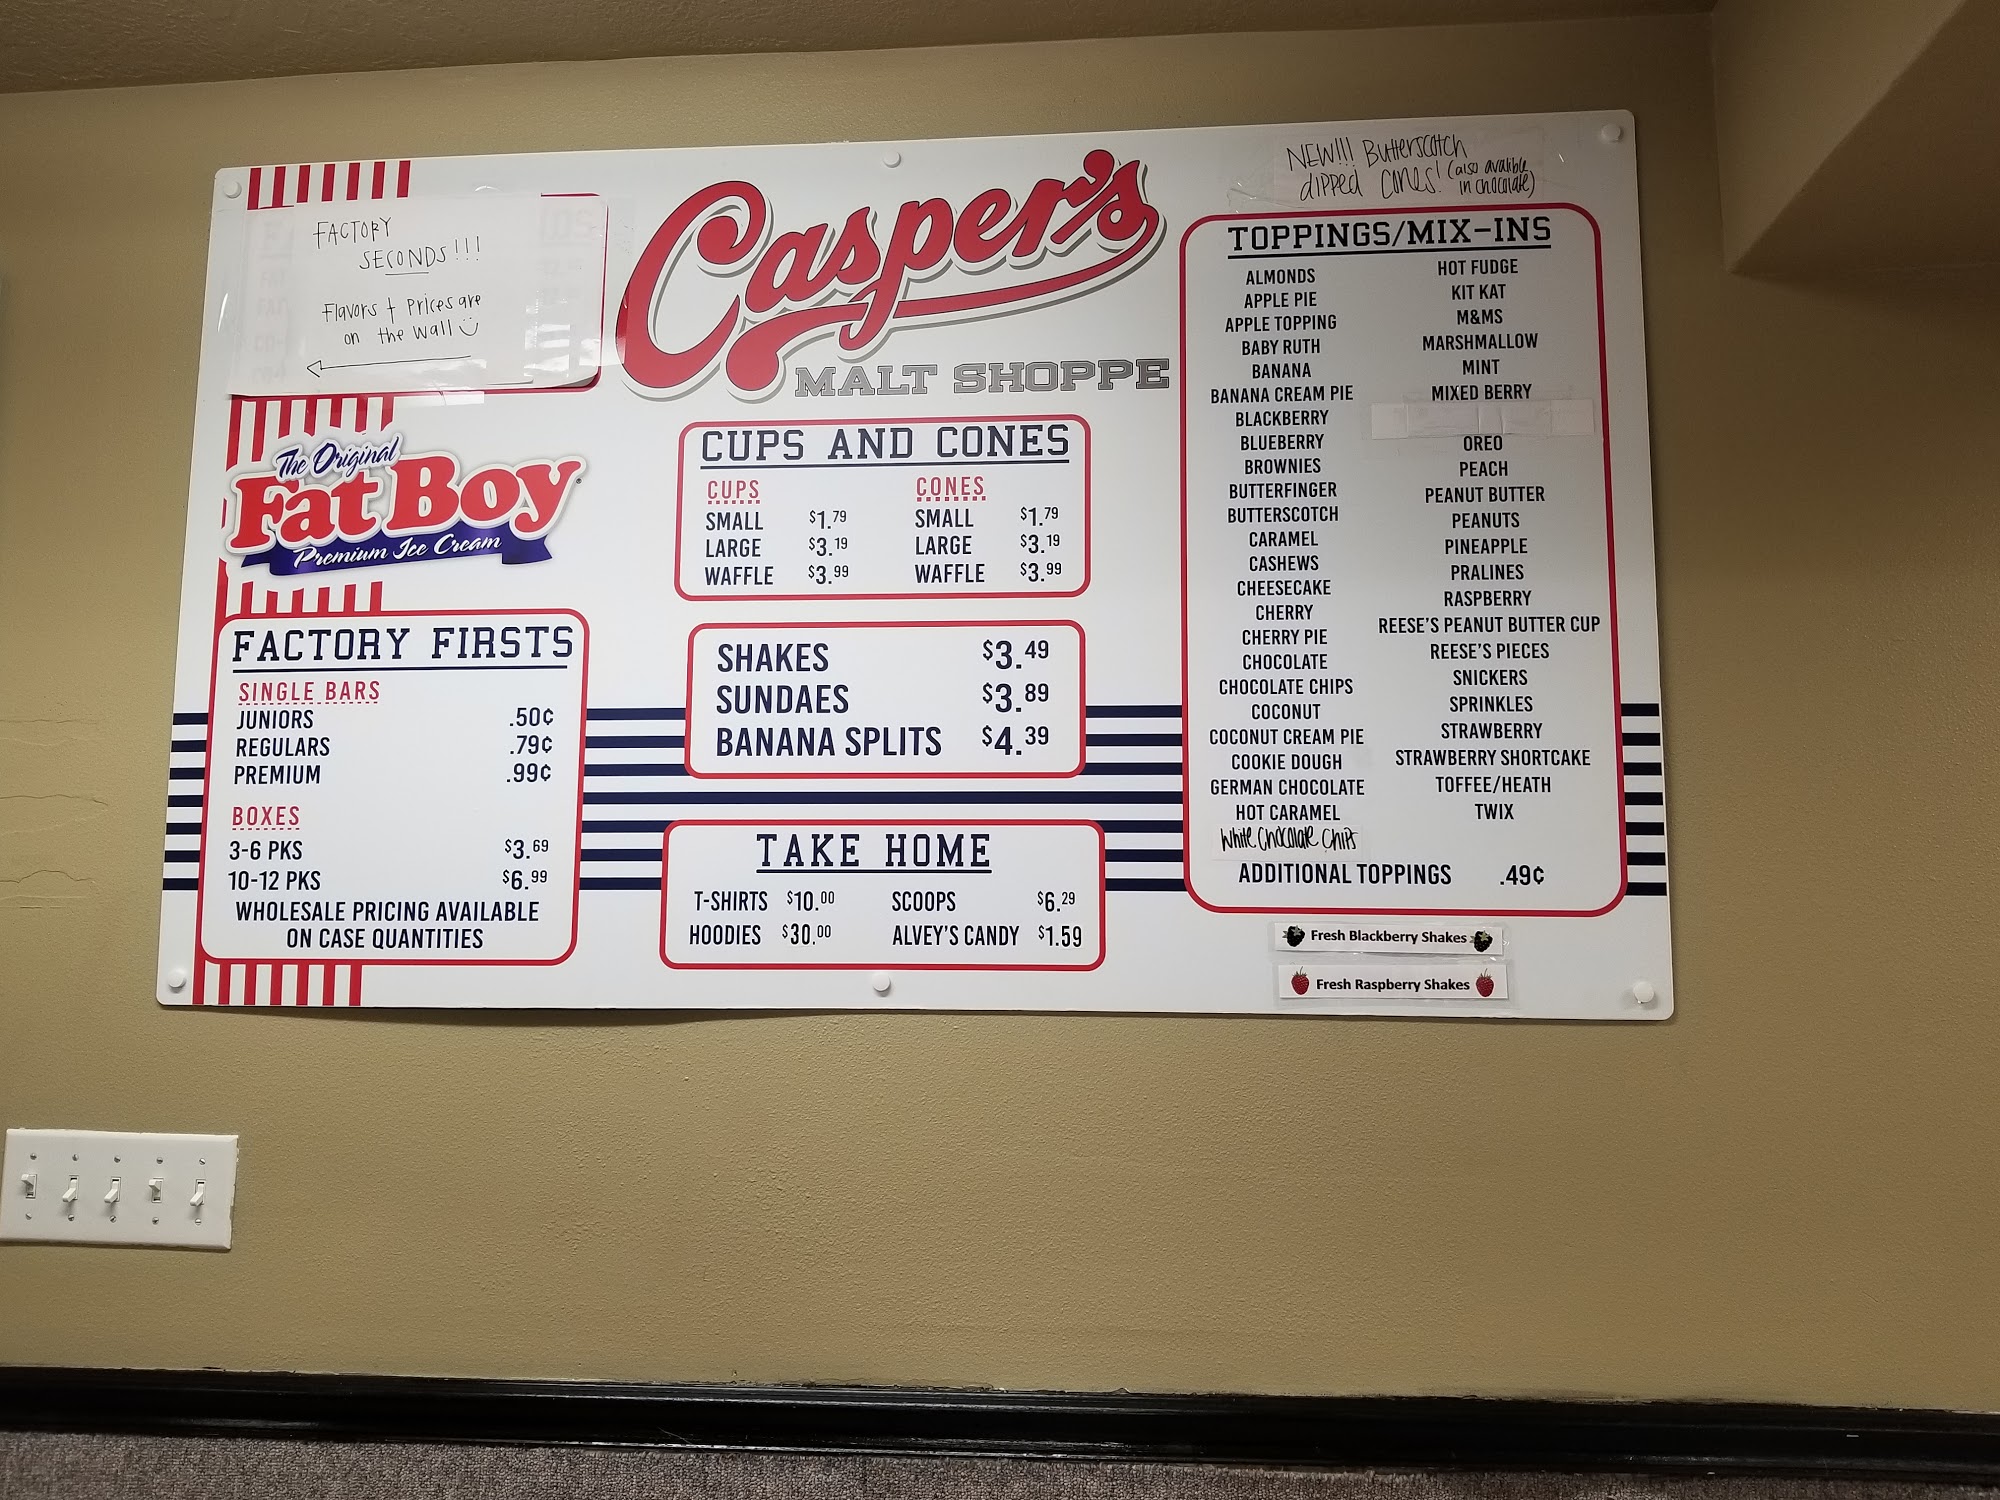 FACTORY
SECONDS!!!
Flavors + Prices are
on the wall
Casper's
MALT SHOPPE
NEW!!! Butterscotch
dipped cones! (also avalible
in chocolate)
The Original
Fat Boy
Premium Ice Cream
FACTORY FIRSTS
SINGLE BARS
JUNIORS .50¢
REGULARS .79¢
PREMIUM .99¢
BOXES
3-6 PKS $3.69
10-12 PKS $6.99
WHOLESALE PRICING AVAILABLE
ON CASE QUANTITIES
CUPS AND CONES
CUPS
SMALL $1.79
LARGE $3.19
WAFFLE $3.99
CONES
SMALL $1.79
LARGE $3.19
WAFFLE $3.99
SHAKES $3.49
SUNDAES $3.89
BANANA SPLITS $4.39
TAKE HOME
T-SHIRTS $10.00
HOODIES $30.00
SCOOPS $6.29
ALVEY'S CANDY $1.59
TOPPINGS/MIX-INS
ALMONDS
APPLE PIE
APPLE TOPPING
BABY RUTH
BANANA
BANANA CREAM PIE
BLACKBERRY
BLUEBERRY
BROWNIES
BUTTERFINGER
BUTTERSCOTCH
CARAMEL
CASHEWS
CHEESECAKE
CHERRY
CHERRY PIE
CHOCOLATE
CHOCOLATE CHIPS
COCONUT
COCONUT CREAM PIE
COOKIE DOUGH
GERMAN CHOCOLATE
HOT CARAMEL
White Chocolate Chips
HOT FUDGE
KIT KAT
M&MS
MARSHMALLOW
MINT
MIXED BERRY
OREO
PEACH
PEANUT BUTTER
PEANUTS
PINEAPPLE
PRALINES
RASPBERRY
REESE'S PEANUT BUTTER CUP
REESE'S PIECES
SNICKERS
SPRINKLES
STRAWBERRY
STRAWBERRY SHORTCAKE
TOFFEE/HEATH
TWIX
ADDITIONAL TOPPINGS .49¢
Fresh Blackberry Shakes
Fresh Raspberry Shakes